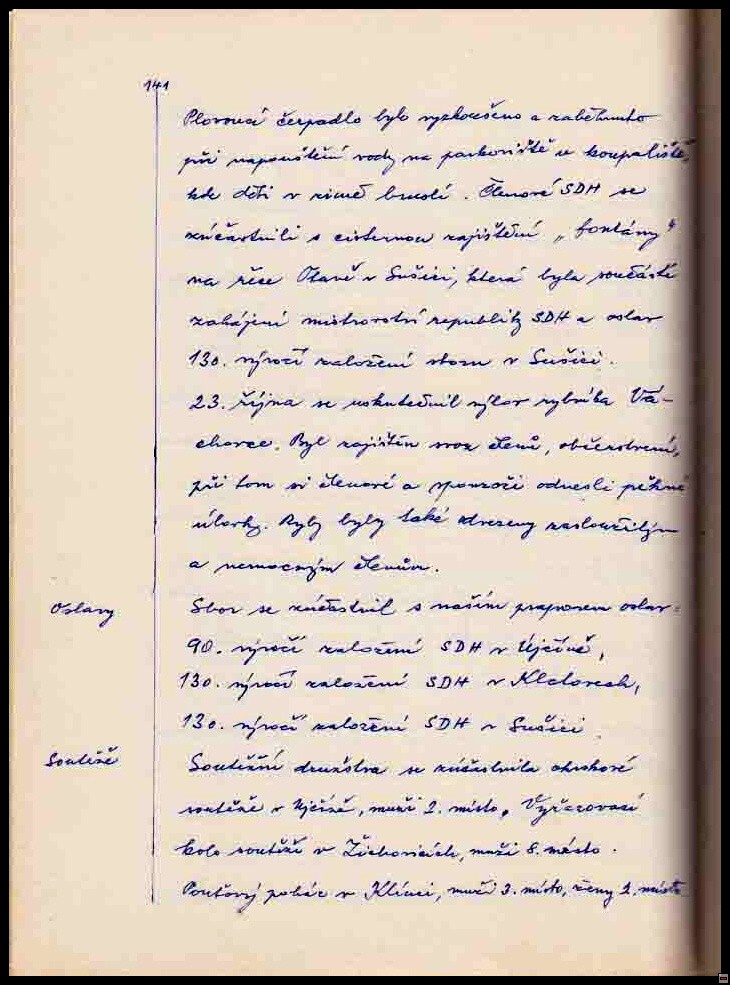 141
Plovoucí čerpadlo bylo vyzkoušeno a zaběhnuto
při napouštění vody na parkoviště u koupaliště,
kde děti v zimě bruslí. Členové SDH se
zúčastnili s cisternou zajištění „fontány"
na řece Otavě v Sušici, která byla součástí
zahájení mistrovství republiky SDH a oslav
130. výročí založení sboru v Sušici.
23. října se uskutečnil výlov rybníka Vá-
chovce. Byl zajištěn svoz členů, občerstvení,
při tom si členové a sponzoři odnesli pěkné
úlovky. Ryby byly také zasloužilým
a nemocným členům.
Oslavy Sbor se zúčastnil s naším praporem oslav:
90. výročí založení SDH v Újčíně,
130. výročí založení SDH v Klatovech,
130. výročí založení SDH v Sušici.
Soutěže Soutěžní družstva se zúčastnila okrskové
soutěže v Újčíně, muži 2. místo, Vyřazovací
kolo soutěží v Žichovicích, muži 8. místo.
Pouťový pohár v muži 3. místo, ženy 2. místo